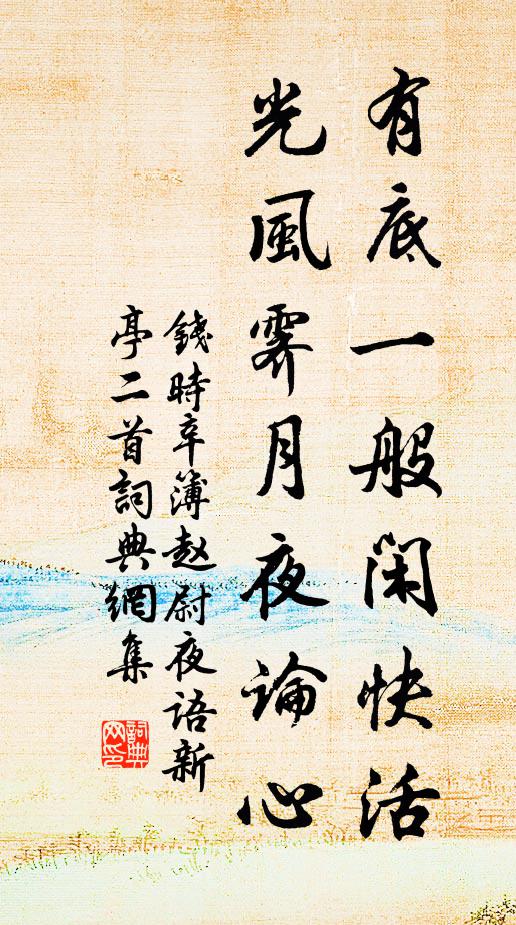 有底一般閑快活
光風霽月夜論心
錢時辛簿赵尉夜语新
亭二首詞典網集
詞典
网印